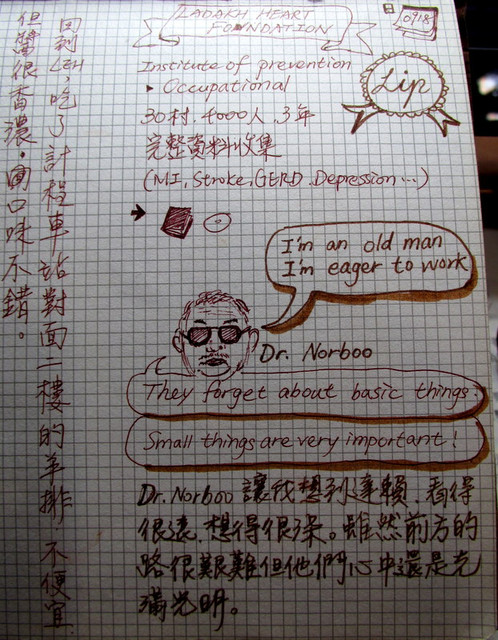 LADAKH HEART
FOUNDATION
0918
Lip
Institute of prevention
▸ Occupational
30村. 4000人. 3年
完整資料收集
(MI, Stroke, GERD. Depression...)
I'm an old man
I'm eager to work
Dr. Norboo
They forget about basic things.
Small things are very important!
Dr. Norboo 讓我想到達賴. 看得
很遠. 想得很深。雖然前方的
路很艱難但他們心中還是充
滿光明。
回到LEH, 吃了計程車站對面二樓的羊排 不便宜
但醬很香濃. 口味不錯。